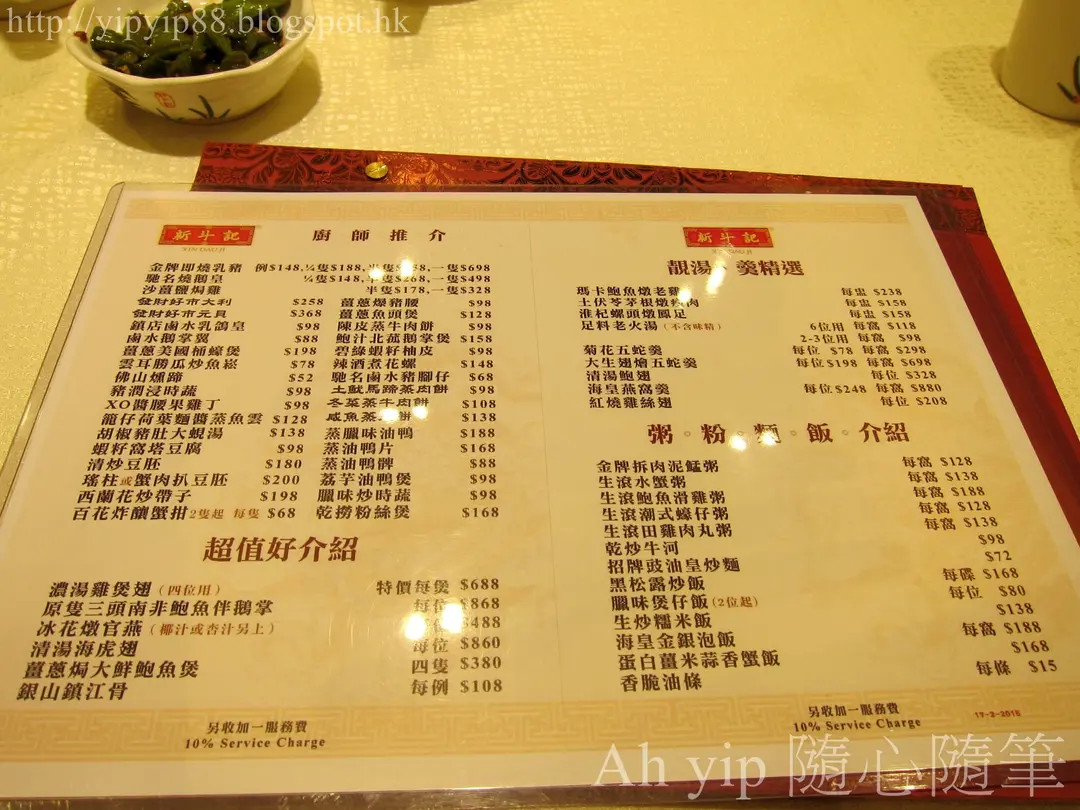 http://yipyip88.blogspot.hk
新斗記
XIN DAU JI
廚師推介
金牌即燒乳豬 例$148,¼隻$188,半隻 ,一隻$698
馳名燒鵝皇 ¼隻$148,半隻$268,一隻$498
沙薑鹽焗雞 半隻$178,一隻$328
發財好市大利 $258 薑蔥爆豬腰 $98
發財好市元貝 $368 薑蔥魚頭煲 $128
鎮店鹵水乳鴿皇 $98 陳皮蒸牛肉餅 $98
鹵水鵝掌翼 $88 鮑汁北菰鵝掌煲 $158
薑蔥美國桶蠔煲 $198 碧綠蝦籽柚皮 $98
雲耳勝瓜炒魚崧 $78 辣酒煮花螺 $148
佛山燻蹄 $52 馳名鹵水豬腳仔 $68
豬潤浸時蔬 $98 土魷馬蹄蒸肉餅 $98
XO醬腰果雞丁 $98 冬菜蒸牛肉餅 $108
籠仔荷葉麵醬蒸魚雲 $128 鹹魚蒸 餅 $138
胡椒豬肚大蜆湯 $138 蒸臘味油鴨 $188
蝦籽窩塔豆腐 $98 蒸油鴨片 $168
清炒豆胚 $180 蒸油鴨髀 $88
瑤柱或蟹肉扒豆胚 $200 荔芋油鴨煲 $98
西蘭花炒帶子 $198 臘味炒時蔬 $98
百花炸釀蟹拑2隻起 每隻 $68 乾撈粉絲煲 $168
超值好介紹
濃湯雞煲翅(四位用) 特價每煲 $688
原隻三頭南非鮑魚伴鵝掌 每位 $868
冰花燉官燕(椰汁或杏汁另上) 位 $488
清湯海虎翅 每位 $860
薑蔥焗大鮮鮑魚煲 四隻 $380
銀山鎮江骨 每例 $108
另收加一服務費
10% Service Charge
新斗記
XIN DAU JI
靚湯、羹精選
瑪卡鮑魚燉老雞 每盅 $238
土伏苓茅根燉 肉 每盅 $158
淮杞螺頭燉鳳足 每盅 $158
足料老火湯(不含味精) 6位用 每窩 $118
2-3位用 每窩 $98
菊花五蛇羹 每位 $78 每窩 $298
大生翅燴五蛇羹 每位$198 每窩 $698
清湯鮑翅 每位 $328
海皇燕窩羹 每位$248 每窩 $880
紅燒雞絲翅 每位 $208
粥・粉・麵・飯・介紹
金牌拆肉泥鯭粥 每窩 $128
生滾水蟹粥 每窩 $138
生滾鮑魚滑雞粥 每窩 $188
生滾潮式蠔仔粥 每窩 $128
生滾田雞肉丸粥 每窩 $138
乾炒牛河 $98
招牌豉油皇炒麵 $72
黑松露炒飯 每碟 $168
臘味煲仔飯(2位起) 每位 $80
生炒糯米飯 $138
海皇金銀泡飯 每窩 $188
蛋白薑米蒜香蟹飯 $168
香脆油條 每條 $15
另收加一服務費
10% Service Charge
17-2-2016
Ah yip 隨心隨筆